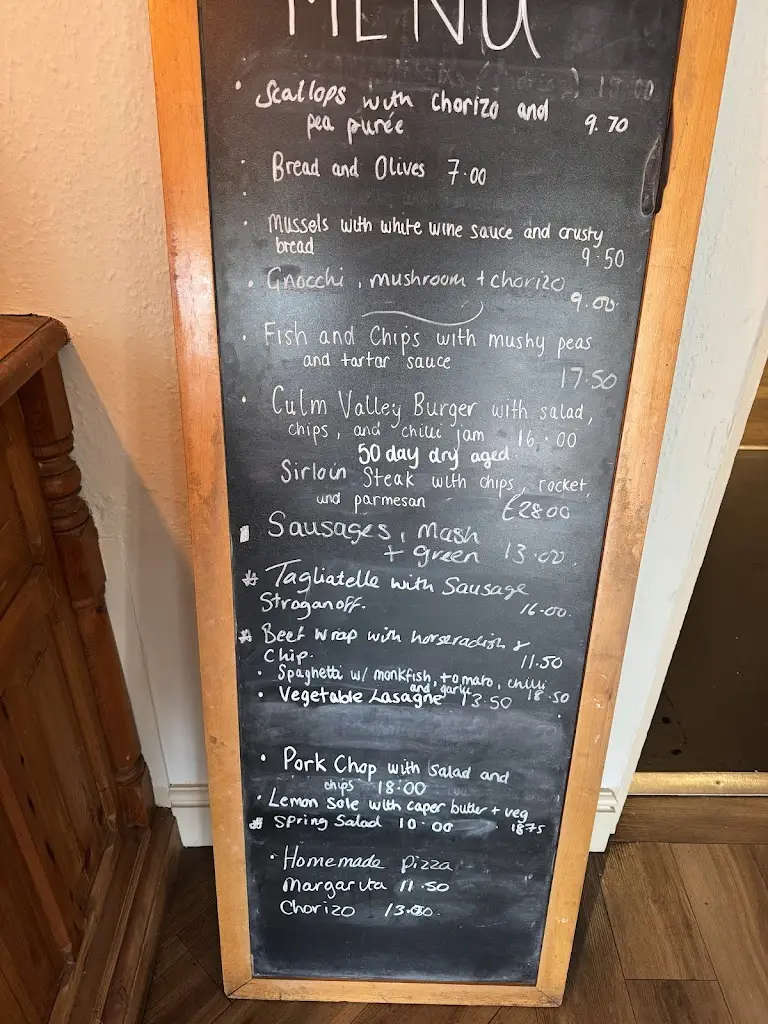 MENU
• Scallops with chorizo and
pea purée 9.70
• Bread and Olives 7.00
• Mussels with white wine sauce and crusty
bread 9.50
• Gnocchi, mushroom + chorizo
9.00
• Fish and Chips with mushy peas
and tartar sauce
17.50
• Culm Valley Burger with salad,
chips, and chilli jam 16.00
50 day dry aged
Sirloin Steak with chips, rocket,
and parmesan £28.00
Sausages, Mash
+ green 13.00
# Tagliatelle with Sausage
Stroganoff. 16.00
# Beef wrap with horseradish &
Chip. 11.50
• Spaghetti w/ monkfish, tomato, chilli
and garlic 18.50
• Vegetable Lasagne 13.50
• Pork Chop with Salad and
chips 18.00
• Lemon Sole with caper butter + veg
18.75
# Spring Salad 10.00
• Homemade pizza
Margarita 11.50
Chorizo 13.00